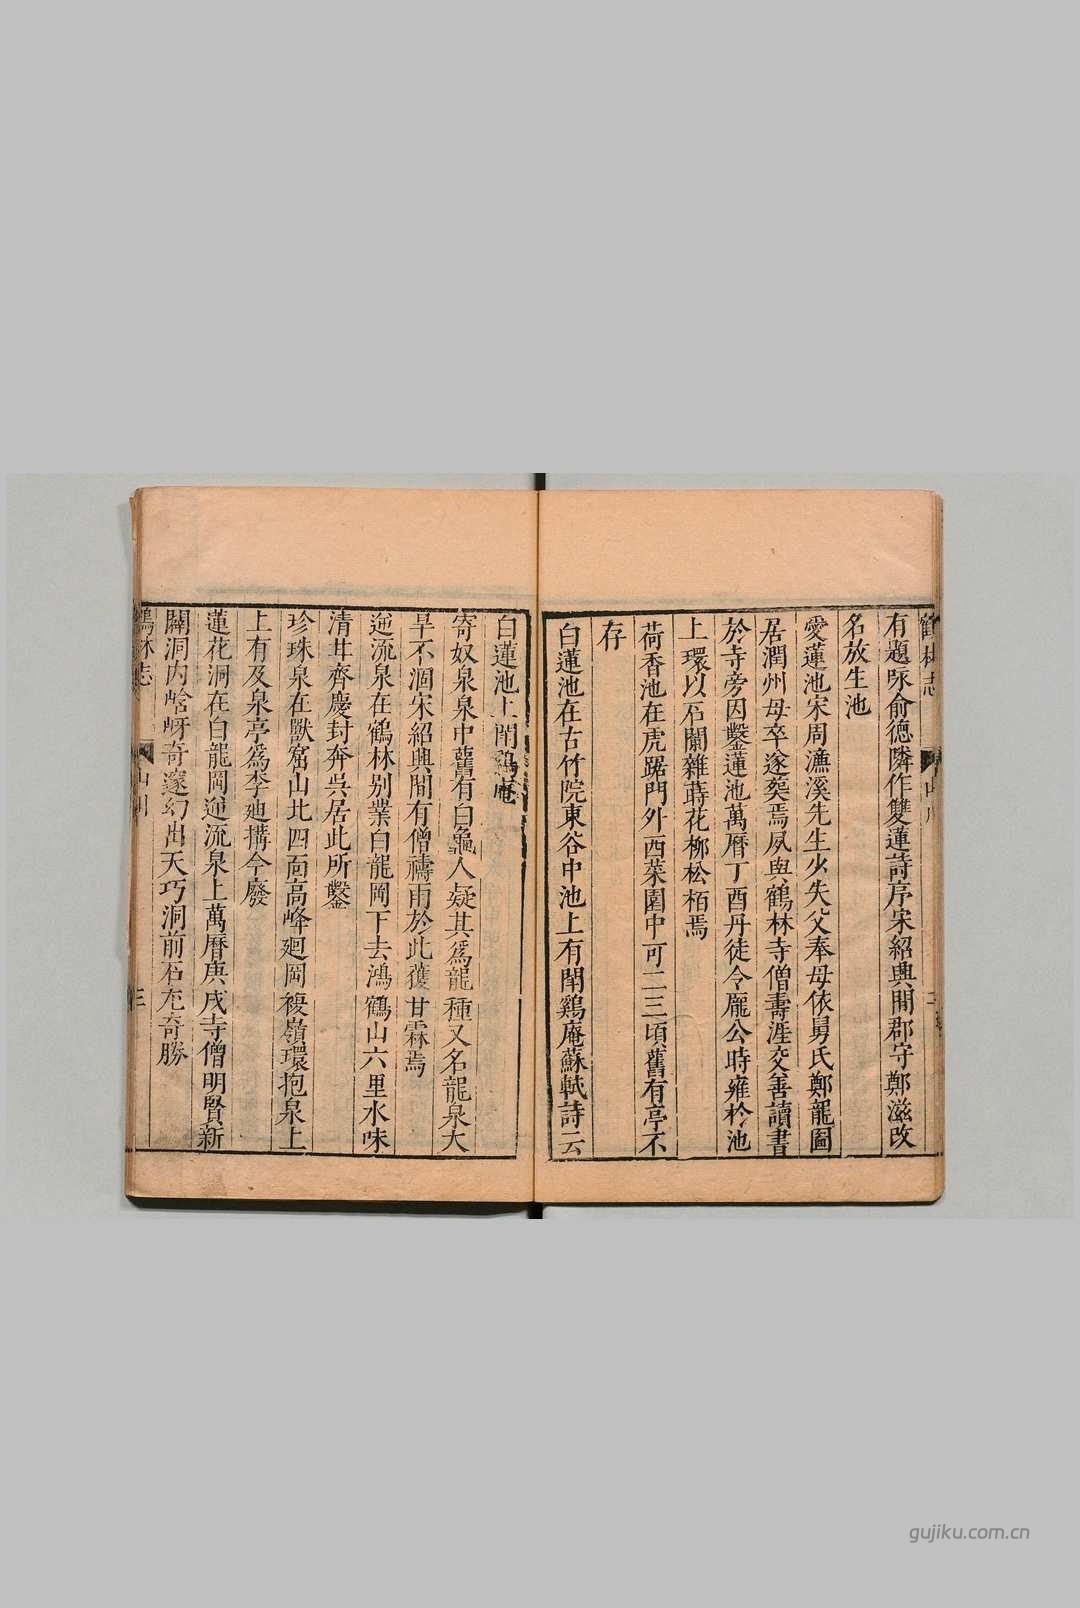 鶴林志
有題咏俞德隣作雙蓮詩序宋紹興間郡守鄭滋改
名放生池
愛蓮池宋周濂溪先生少失父奉母依舅氏鄭龍圖
居潤州母卒遂葬焉夙與鶴林寺僧壽涯交善讀書
於寺旁因鑿蓮池萬曆丁酉丹徒令龐公時雍於池
上環以石闌雜蒔花柳松栢焉
荷香池在虎踞門外西菜園中可二三頃舊有亭不
存
白蓮池在古竹院東谷中池上有閘鷄庵蘇軾詩云
白蓮池上閘鷄庵
寄奴泉泉中舊有白龜人疑其爲龍種又名龍泉大
旱不涸宋紹興間有僧禱雨於此獲甘霖焉
逆流泉在鶴林别業白龍岡下去鴻鶴山六里水味
清甘齊慶封奔吳居此所鑿
珍珠泉在獸窟山北四面高峰廻岡複嶺環抱泉上
上有及泉亭爲李廸搆今廢
蓮花洞在白龍岡逆流泉上萬曆庚戌寺僧明賢新
闢洞内岈奇邃幻出天巧洞前石尤奇勝
鶴林志 山川 三
gujiku.com.cn